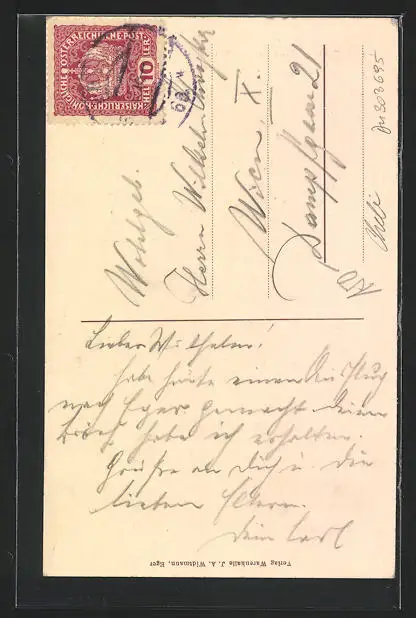 KAISERLICHE KÖNIGLICHE ÖSTERREICHISCHE POST
HELLER 10 HELLER
Wohlgeb.
Herrn Wilhelm
Wien X.
Dampfgasse 21
Lieber Wilhelm!
habe heute einen Ausflug
nach Eger gemacht deinen
Brief habe ich erhalten.
Grüße an Dich u. die
lieben Eltern.
Dein Karl
Verlag Warenhalle J. A. Widtmann, Eger